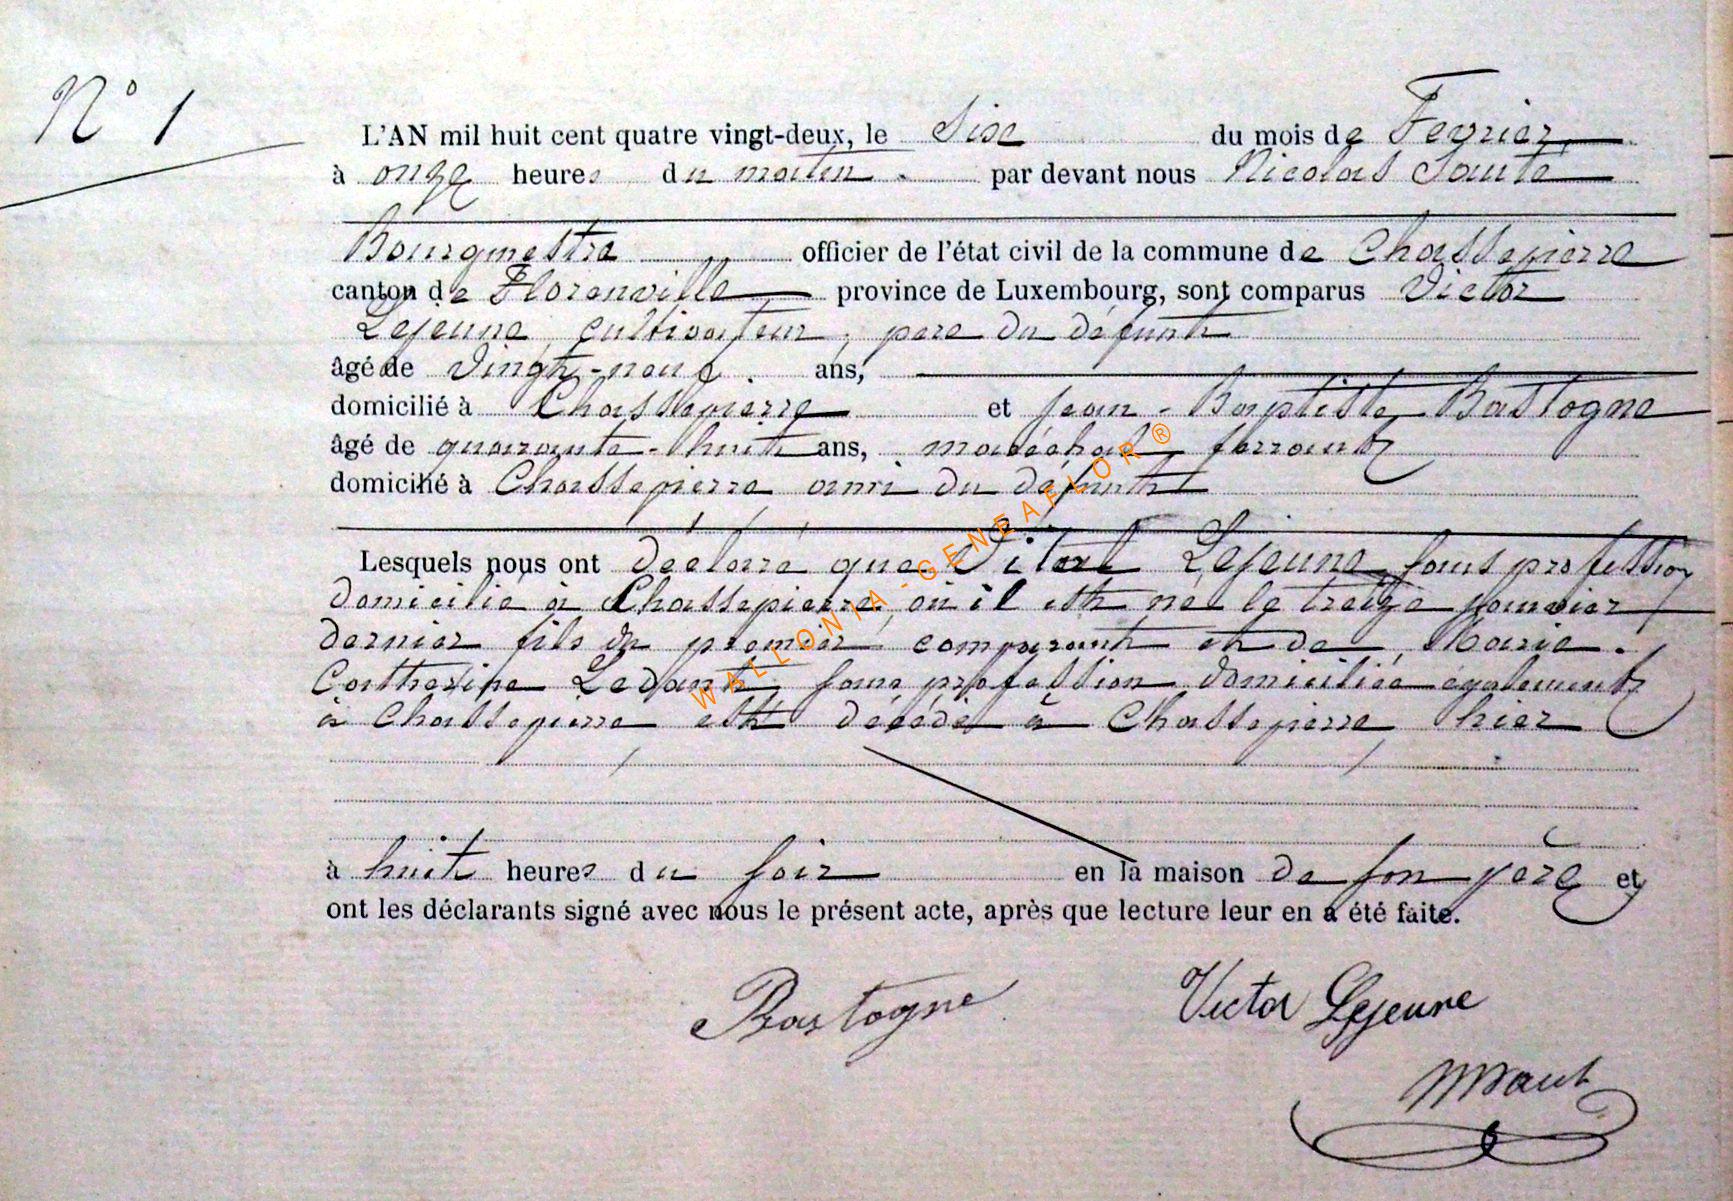 N° 1
L'AN mil huit cent quatre vingt-deux, le Six du mois de Fevrier
à onze heures du matin par devant nous Nicolas
Bourgmestre officier de l'état civil de la commune de Chassepierre
canton de Florenville province de Luxembourg, sont comparus Victor
Lejeune, cultivateur, pere du défunt
âgé de vingt-neuf ans,
domicilié à Chassepierre et Jean-Baptiste Bastogne
âgé de quarante-huit ans, maréchal ferrant
domicilié à Chassepierre ami du défunt
Lesquels nous ont déclaré que Vital Lejeune sans profession
domicilié à Chassepierre, où il est né le treize janvier
dernier fils du premier comparant et de Marie.
Catherine Ledant, sans profession domiciliée également
à Chassepierre est décédé à Chassepierre, hier
à huit heures du soir en la maison de son père et
ont les déclarants signé avec nous le présent acte, après que lecture leur en a été faite.
Bastogne Victor Lejeune
WALLONIA-GENEAFLOR ®